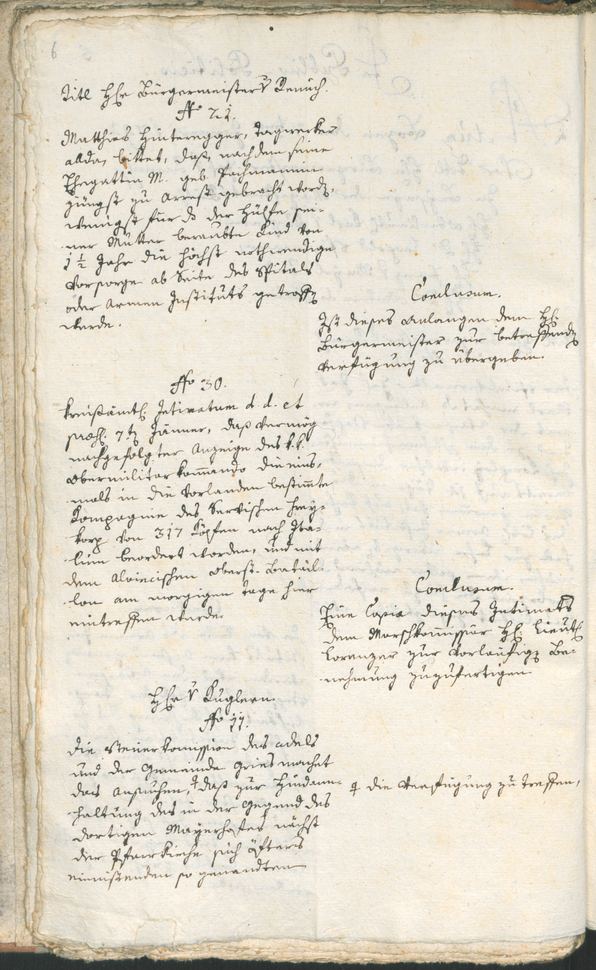 6
Titl H:Hr Bürgermeister v Remich.
No 21.
Matthias Hinteregger, Tagwercker
allda, bittet, daß, nachdem seine
Ehegattin M. geb. Pachmannin
jüngst zu Arrest gebracht word,
wenigst für d der Hülfe sei-
ner Mutter beraubte Kind von
1 1/2 Jahr die höchst nothwendige
Vorsorge ab Seite des Spitals
oder Armen Instituts getroffen
werde.
Conclusum.
Ist dieses Anlangen dem H:
Bürgermeister zur betreffenden
Verfügung zu übergeben.
No 30.
Kreisämtl. Intimatum d. d. et
praes. 7ten Jänner, daß vermög
nachgefolgter Anzeige des k. k.
Obermilitarkommando die eins-
mals in die Vorlanden bestimmte
Kompagnie des Servischen Frey-
korp von 317 Köpfen nach Ita-
lien beordert worden, und mit
dem Alvincischen Oberst-Batail-
lon am morgigen Tage hier
eintreffen werde.
Conclusum.
Eine Copia dieses Intimats
dem Marschkommissär H: Lieut:
Lorenzer zur vorläufigen Be-
nehmung zuzufertigen.
H:Hr v Kuglern.
No 11.
Die Steuerkomission des Adels
und der Gemeinde Gries machet
das Ansuchen, daß zur Hindann-
haltung des in der Gegend des
dortigen Mayerhofes nächst
der Pfarrkirche sich öfters
einnistenden so genandten
die Verfügung zu treffen,